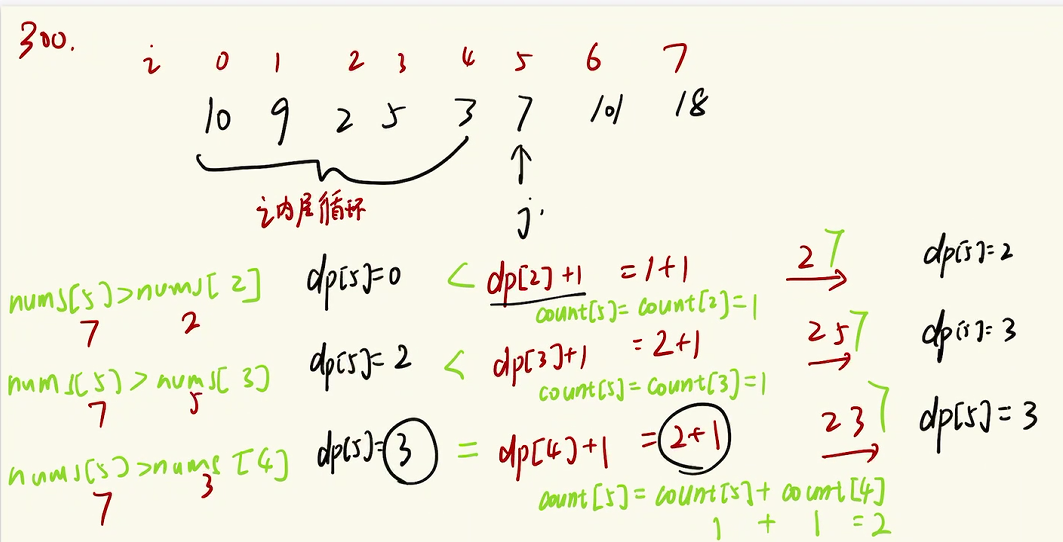 300.
i 0 1 2 3 4 5 6 7
10 9 2 5 3 7 101 18
i内层循环
j
nums[5]>nums[2] dp[5]=0 < dp[2]+1 =1+1 27 dp[5]=2
7 2 count[5]=count[2]=1
nums[5]>nums[3] dp[5]=2 < dp[3]+1 =2+1 257 dp[5]=3
7 5 count[5]=count[3]=1
nums[5]>nums[4] dp[5]=3 = dp[4]+1 =2+1 237 dp[5]=3
7 3 count[5]=count[5]+count[4]
1 + 1 =2